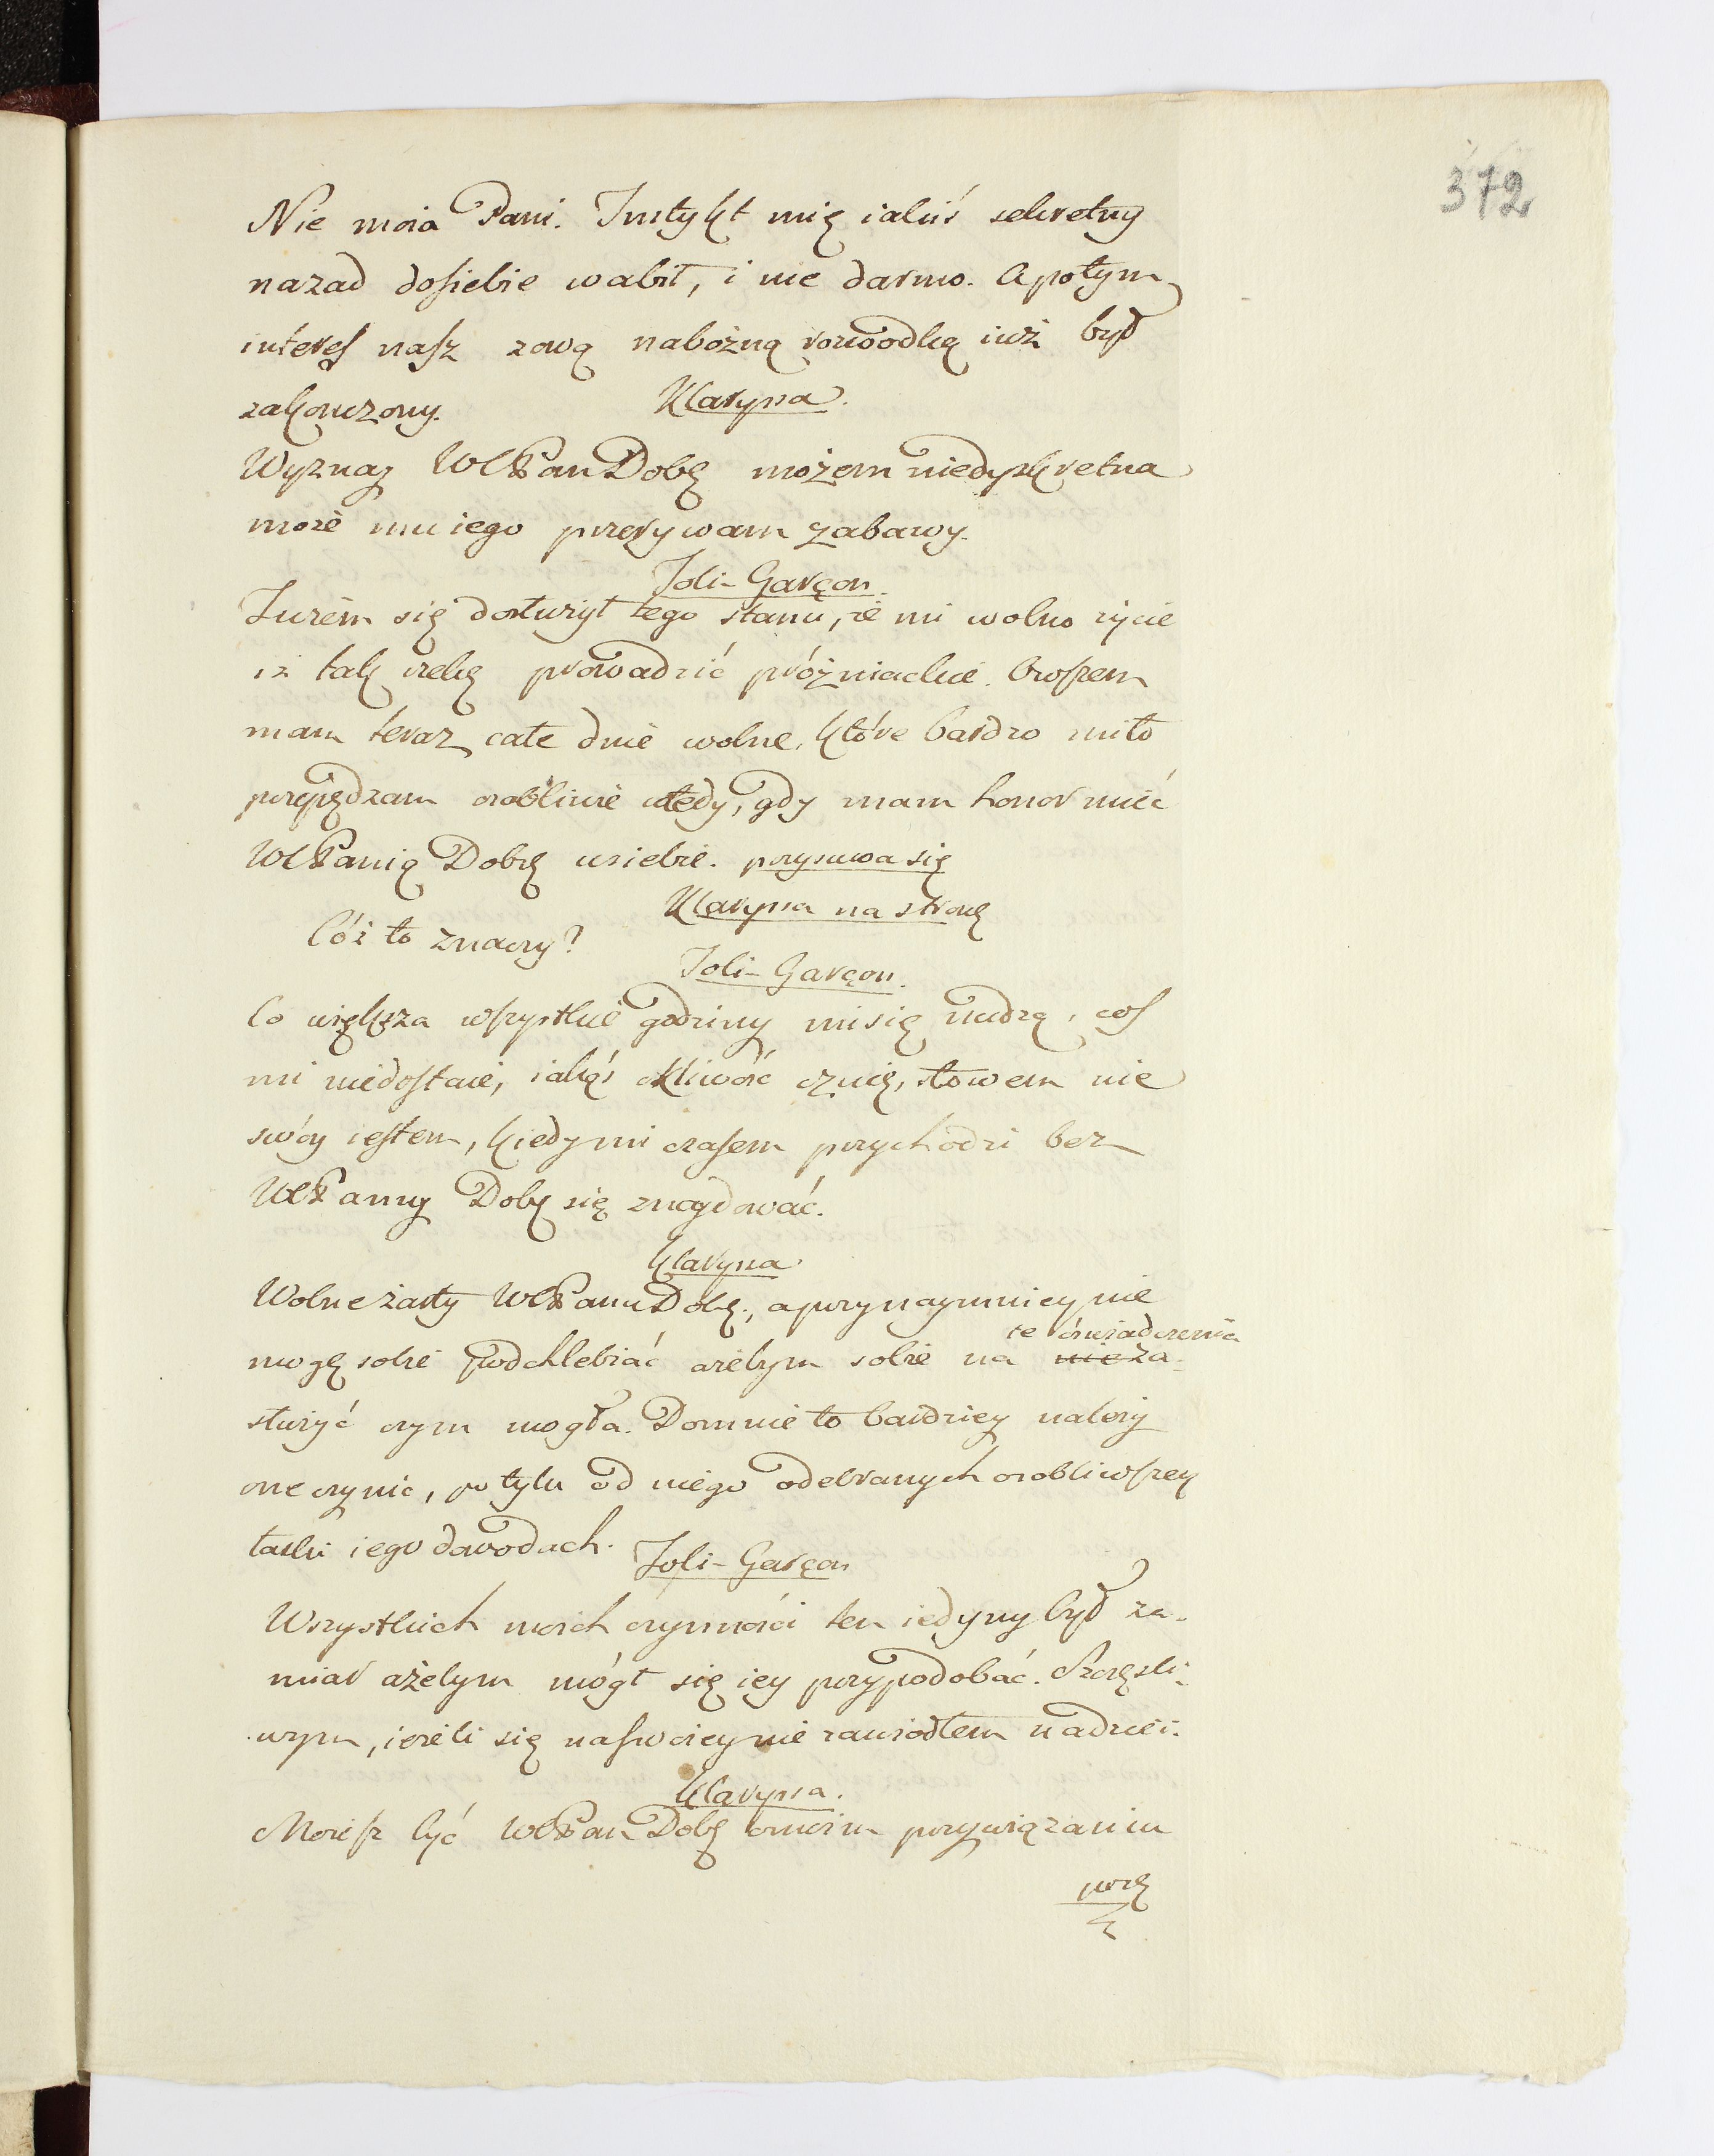 372
Nie moia Pani. Instykt mię iakiś sekretny
nazad dosiebie wabił, i nie darmo. A potym
interes nasz zową nabożną rozwodką iuż był
zakonczony. Klaryssa.
Wyznaj WCPan Dobę możem niedyskretna
może mu iego przerywam zabawy.
Joli-Garçon.
Jużem się dosłużył tego stanu, że mi wolno życie
iż tak rzekę prowadzić próżniackie. Owszem
mam teraz całe dnie wolne, które bardzo miło
przepędzam osobliwie wtedy, gdy mam honor mieć
WCPanią Dobrę usiebie. przysuwa się
Klaryssa na stronę
Cóż to znaczy?
Joli-Garçon.
Co większa wszystkie godziny misię nudzą, coś
mi niedostaie, iakąś ckliwość czuię, słowem nie
swóy iestem, kiedy mi czasem przychodzi bez
WCPanny Dobę się znaydować.
Klaryssa
Wolne żarty WCPanu Dobę., aprzynaymniey nie
mogę sobie podchlebiać ażebym sobie na nie za-
te oświadczenia
służyć czym mogła. Domnie to bardziey należy
one czynić, po tylu od niego odebranych osobliwszey
łaski iego dowodach.
Joli-Garçon
Wszystkich moich czynności ten iedyny był za-
miar ażebym mógł się iey przypodobać. Szczęśli-
wym, ieżeli się naswoiey nie zawiodłem nadziei.
Klaryssa.
Możesz być WCPan Dobę omoim przywiązaniu
prze